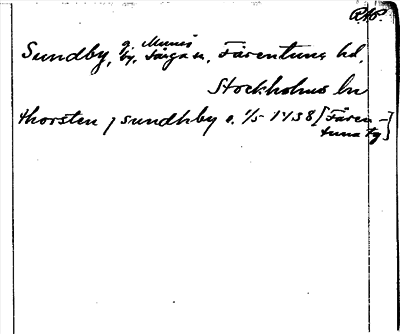 RAP.
Sundby, g. Munsö by, Färgan, Färentuna hd,
Stockholms ln
thorsten j sundhby o. 1/5 1438 [Fären-
tuna tg]